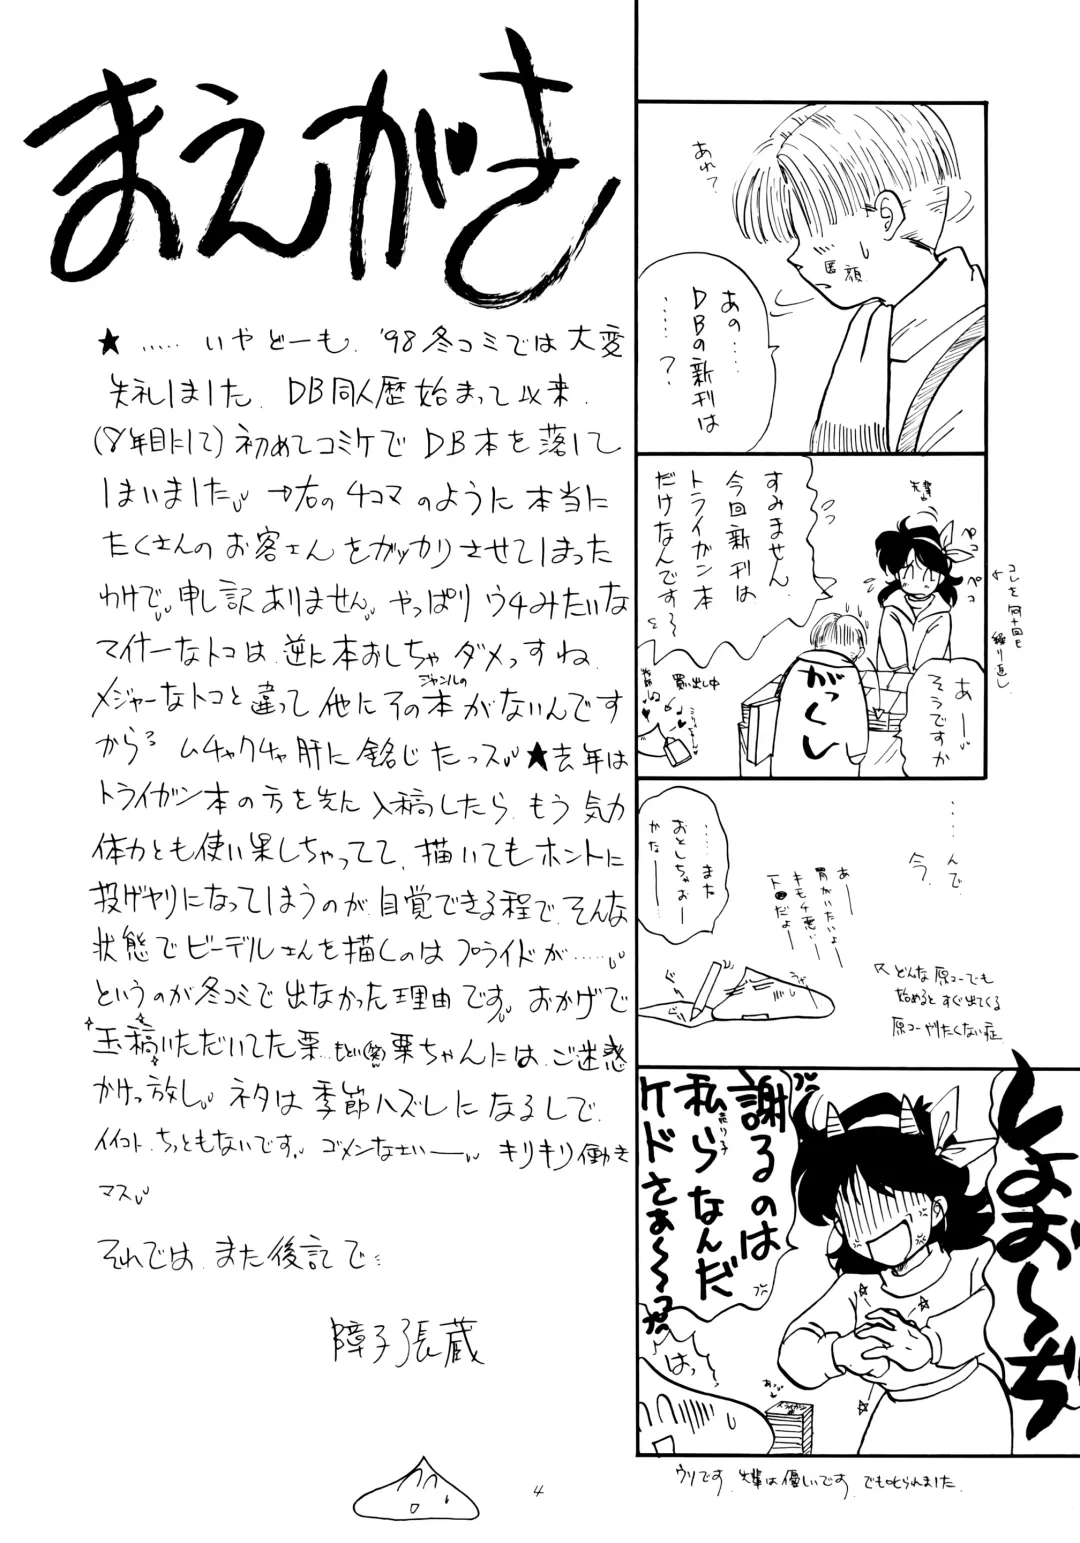 まえがき
★……いやどーも、'98冬コミでは大変
失礼しました、DB同人歴始まって以来、
(8年目にして)初めてコミケでDB本を落して
しまいました〃→右の4コマのように本当に
たくさんのお客さんをガッカリさせてしまった
わけで〃申し訳ありません〃やっぱりウチみたいな
マイナーなトコは、逆に本おしちゃダメっすね、
メジャーなトコと違って他にその本がないんです
ジャンルの
から〃ムチャクチャ肝に銘じたっス〃★去年は
トライガン本の方を先に入稿したら、もう気力
体力とも使い果しちゃってて、描いてもホントに
投げヤリになってしまうのが自覚できる程で、そんな
状態でビーデルさんを描くのはプライドが……〃
というのが冬コミで出なかった理由です〃おかげで
玉稿いただいてた栗…もとい(笑)栗ちゃんには、ご迷惑
かけっ放し〃ネタは季節ハズレになるしで、
イイコトちっともないです〃ゴメンなさいー〃キリキリ働き
マス〃
それでは、また後記で〃
障子張蔵
4
あれ?
匿顔
あの……
DBの新刊は
……?
すみません
今回新刊は
トライガン本
だけなんです〜
先輩
ペコ
ペコ
コレを何十回も
繰り返し
あー〃
そうですか
がっくし
買い出し中
……んで、
今、
……また
おとしちゃおー
かなーー
あーー
胃がいたいよー
キモチ悪いー
下■だよー
どんな原コーでも
始めるとすぐ出てくる
原コーやりたくない症
しょお〜ぢ
謝るのは
私らなんだ
売り子
ケドさぁ〜っ
はっ
あっ
トライガン
ウソです、先輩は優しいです、でも叱られました、